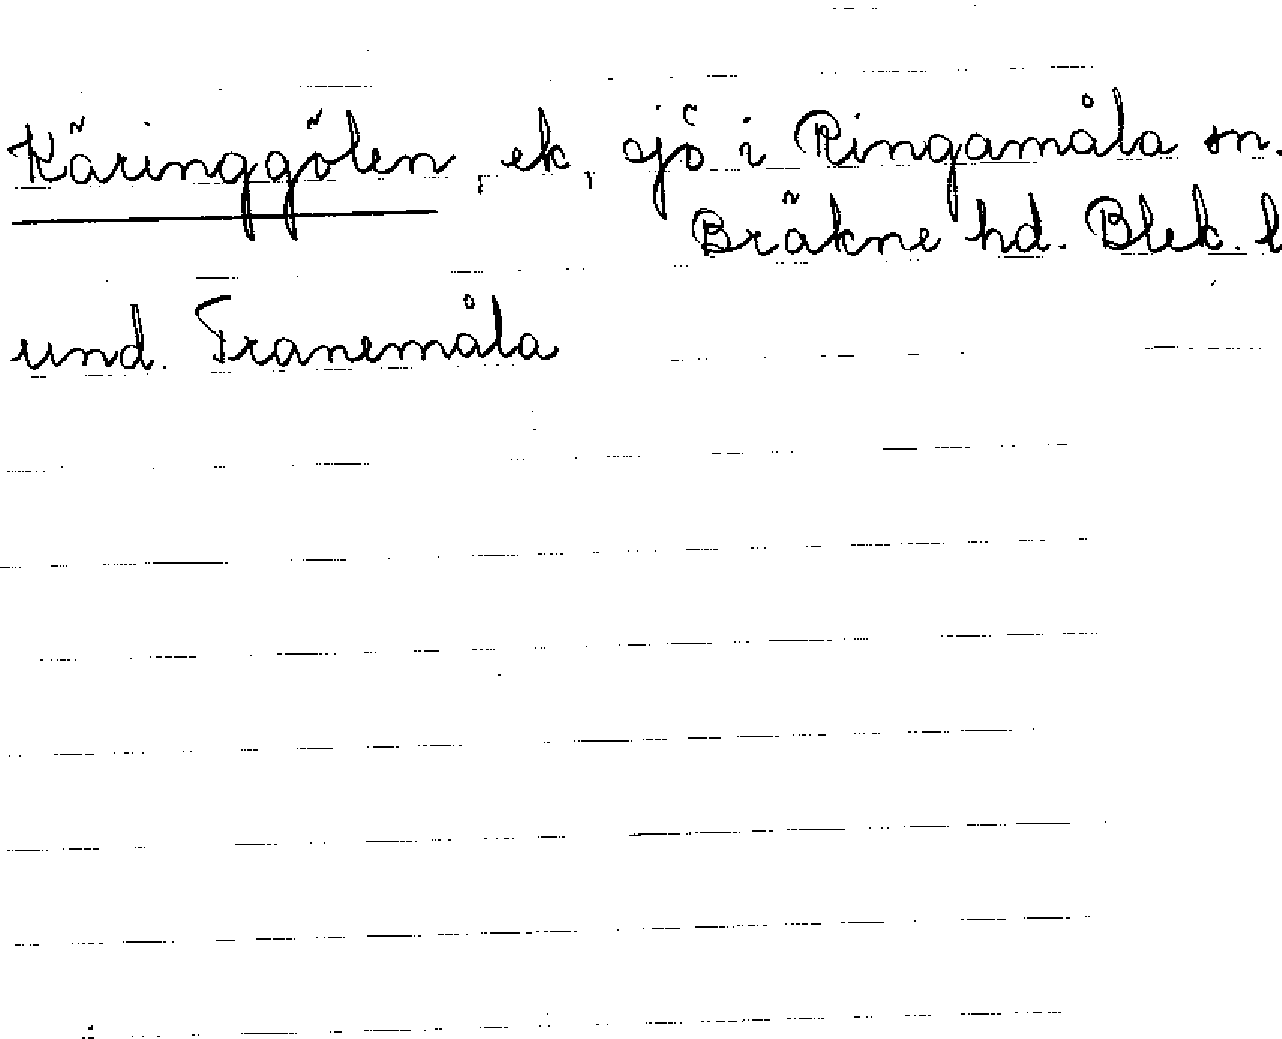 Käringgölen, ek, sjö i Ringamåla sn.
Bräkne hd. Blek. l
und. Tranemåla